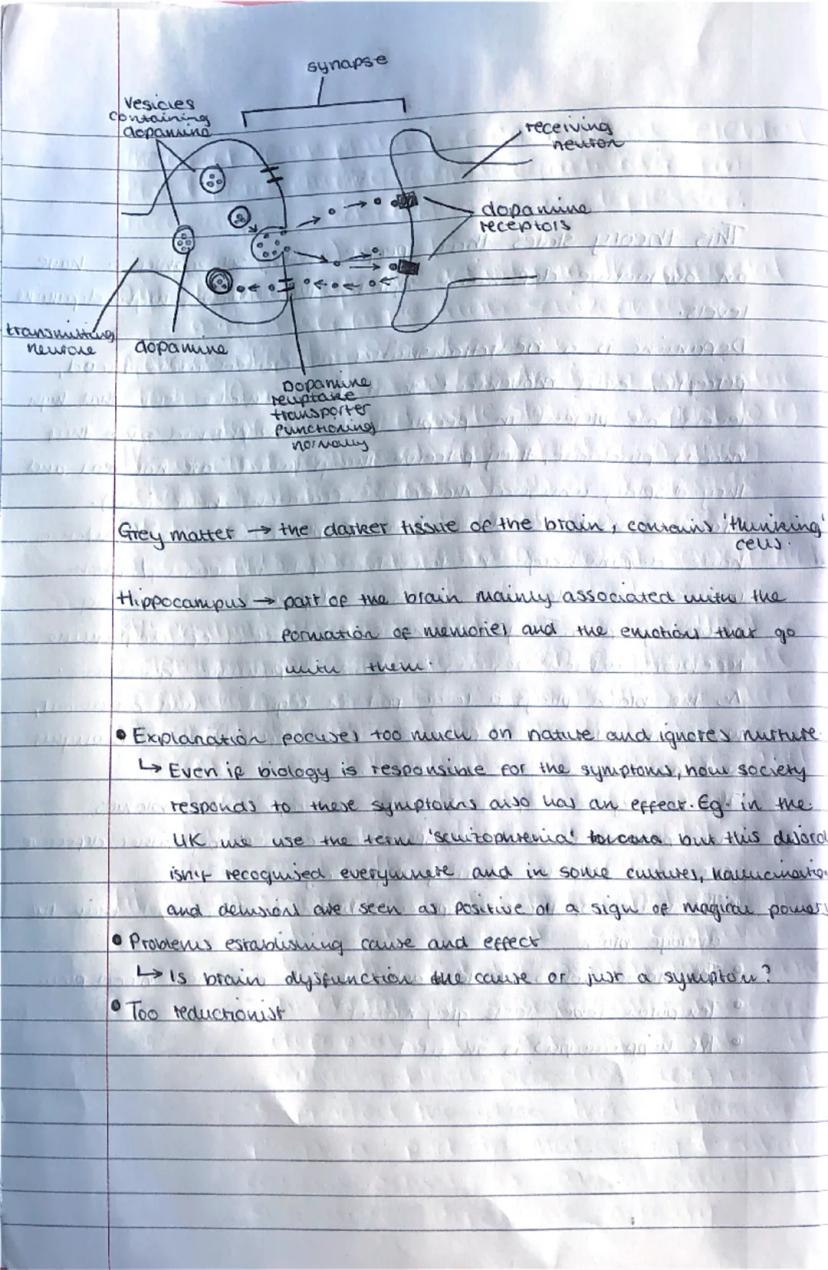 synapse
vesicles
containing
dopamine
receiving
neuron
dopamine
receptors
transmitting
neurone
dopamine
Dopamine
reuptake
transporter
functioning
normally
Grey matter → the darker tissue of the brain, contains 'thinking'
cells.
Hippocampus → part of the brain mainly associated with the
formation of memories and the emotions that go
with them.
• Explanation focuses too much on nature and ignores nurture
↳ Even if biology is responsible for the symptoms, how society
responds to these symptoms also has an effect. Eg. in the
UK we use the term 'schizophrenia' but this disord
isn't recognised everywhere and in some cultures, hallucinatio
and delusions are seen as positive or a sign of magical powers
• Problems establishing cause and effect
↳ Is brain dysfunction the cause or just a symptom?
• Too reductionist